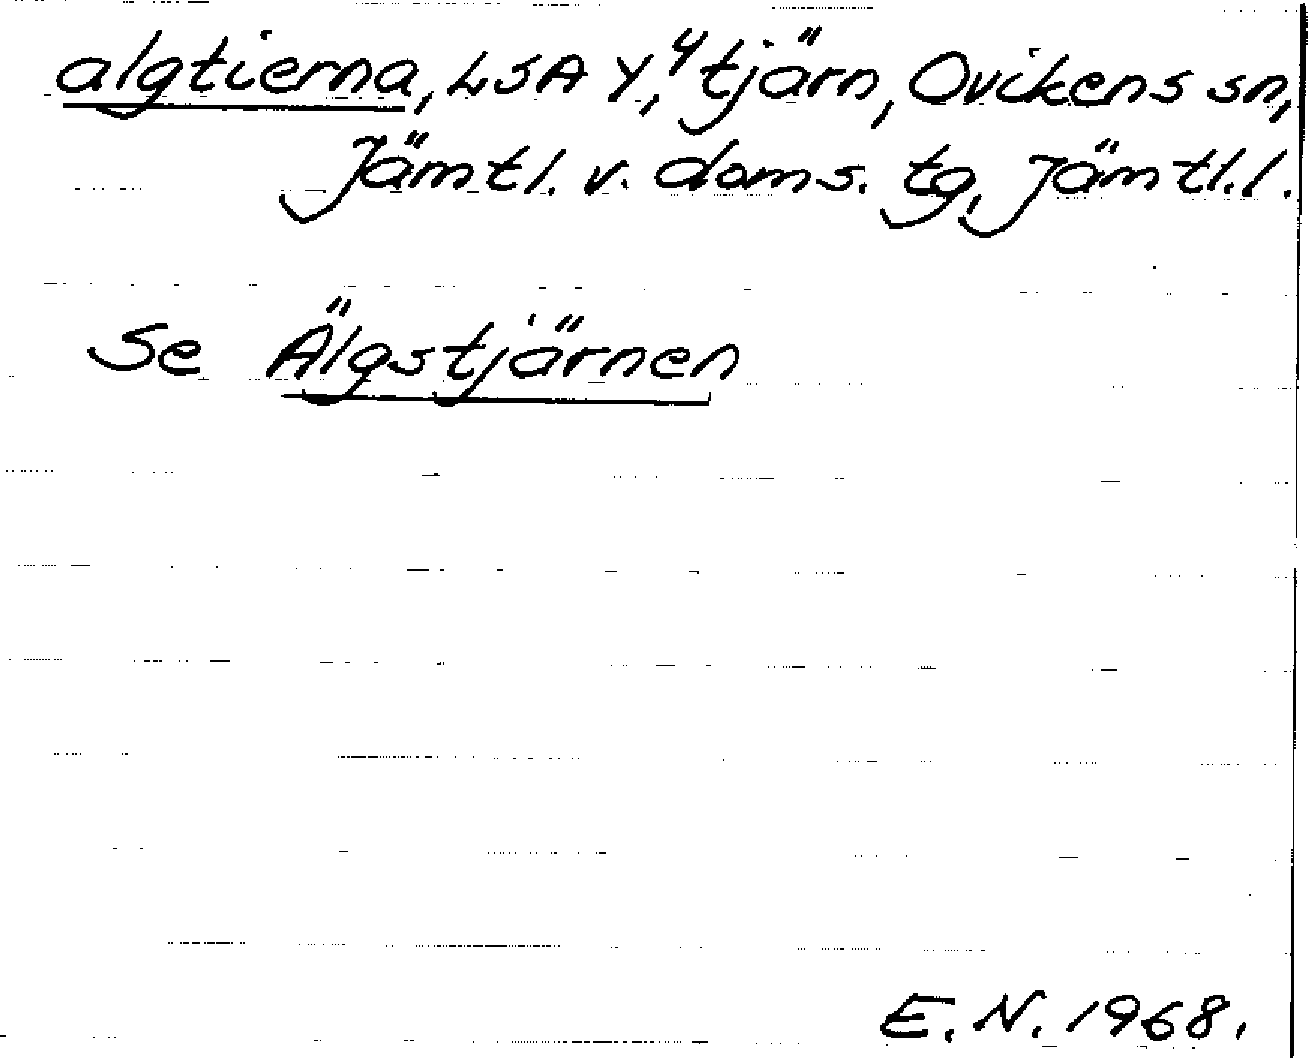 algtierna, LSA Y,⁴ tjärn, Ovikens sn,
Jämtl. v. doms. tg, Jämtl.l.
Se Älgstjärnen
E.N. 1968.